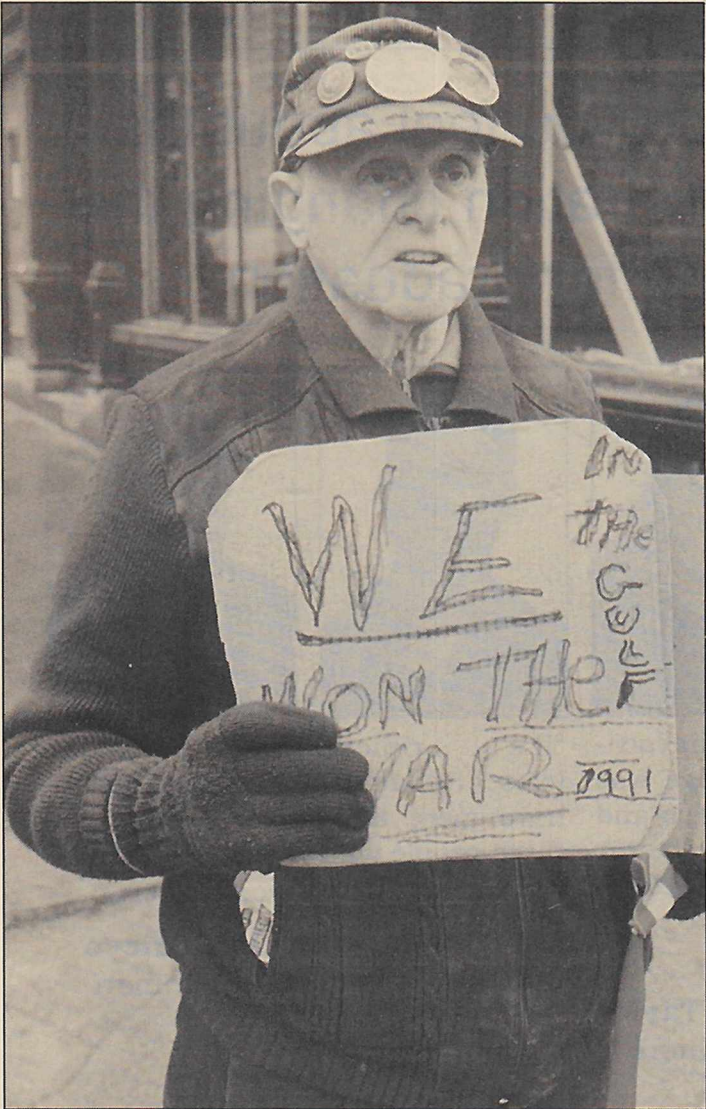 WE
WON THE
WAR
IN
THE
GULF
1991